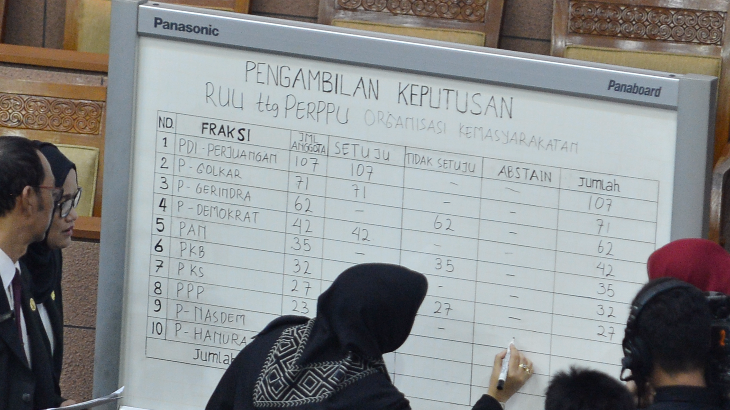 Panasonic
Panaboard
PENGAMBILAN KEPUTUSAN
RUU ttg PERPPU ORGANISASI KEMASYARAKATAN
NO. FRAKSI JML ANGGOTA SETUJU TIDAK SETUJU ABSTAIN Jumlah
1 PDI-PERJUANGAN 107 107 - - 107
2 P-GOLKAR 71 71 - - 71
3 P-GERINDRA 62 - 62 - 62
4 P-DEMOKRAT 42 42 - - 42
5 PAN 35 - 35 - 35
6 PKB 32 - 32
7 PKS 27 27 - 27
8 PPP 23
9 P-NASDEM
10 P-HANURA
Jumlah